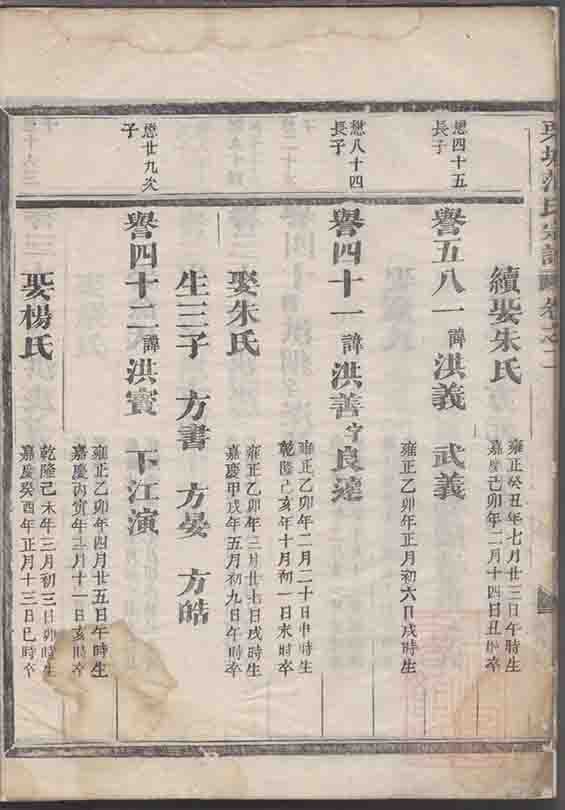 氏宗譜 卷之二
續娶朱氏
雍正癸丑年七月廿三日午時生
嘉慶己卯年二月十四日丑時卒
懋四十五
長子
譽五八一 諱 洪義 武義
雍正乙卯年正月初六日戌時生
懋八十四
長子
譽四十一 諱 洪善 字 良達
雍正乙卯年二月二十日申時生
乾隆己亥年十月初一日未時卒
娶朱氏
雍正乙卯年二月廿七日戌時生
嘉慶甲戌年五月初九日午時卒
生三子 方書 方晏 方皓
懋廿九次
子
譽四十二 諱 洪賓 下江演
雍正乙卯年四月廿五日午時生
嘉慶丙寅年三月十一日亥時卒
娶楊氏
乾隆己未年三月初三日卯時生
嘉慶癸酉年正月十三日巳時卒